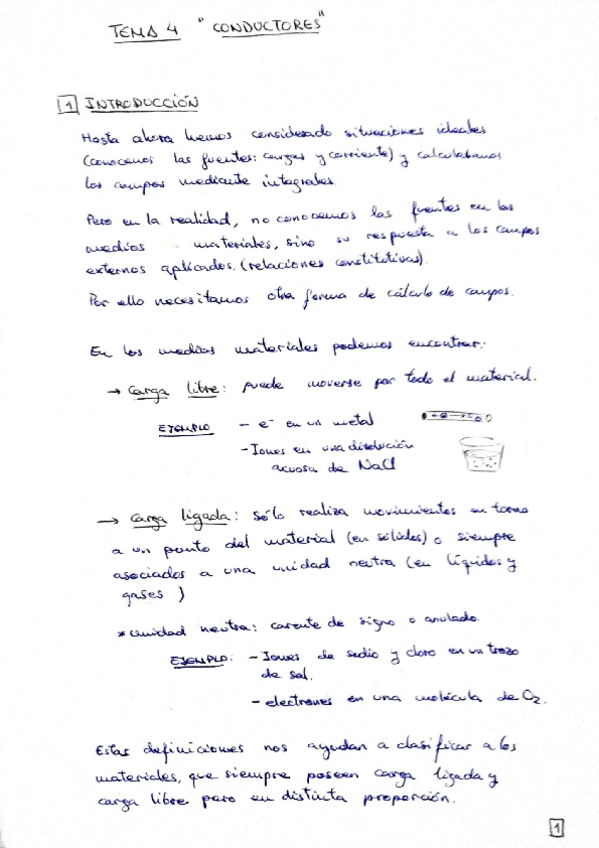 TEMA 4 "CONDUCTORES"
1 INTRODUCCIÓN
Hasta ahora hemos considerado situaciones ideales
(conocemos las fuentes: cargas y corriente) y calculábamos
los campos mediante integrales.
Pero en la realidad, no conocemos las fuentes en los
medios materiales, sino su respuesta a los campos
externos aplicados. (relaciones constitutivas).
Por ello necesitamos otra forma de cálculo de campos.
En los medios materiales podemos encontrar:
→ Carga libre: puede moverse por todo el material.
EJEMPLO - e⁻ en un metal
- Iones en una disolución
acuosa de NaCl
→ Carga ligada: sólo realiza movimientos en torno
a un punto del material (en sólidos) o siempre
asociados a una unidad neutra (en líquidos y
gases)
* Unidad neutra: carente de signo o anulado.
EJEMPLO: - Iones de sodio y cloro en un trozo
de sal.
- electrones en una molécula de O₂.
Estas definiciones nos ayudan a clasificar a los
materiales, que siempre poseen carga ligada y
carga libre pero en distinta proporción.
1